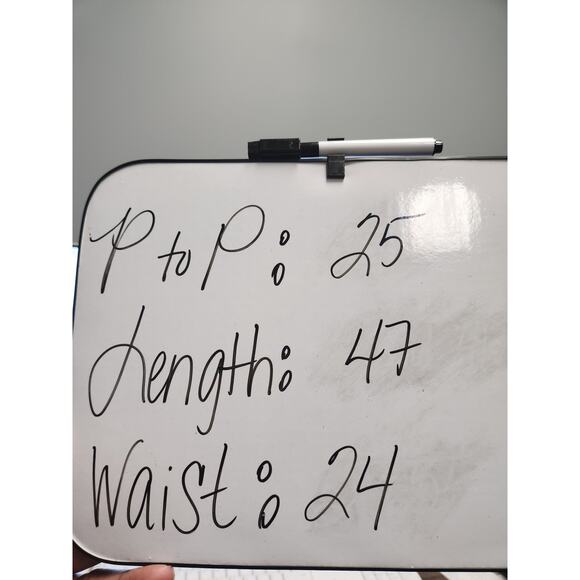 P to P: 25
Length: 47
Waist: 24